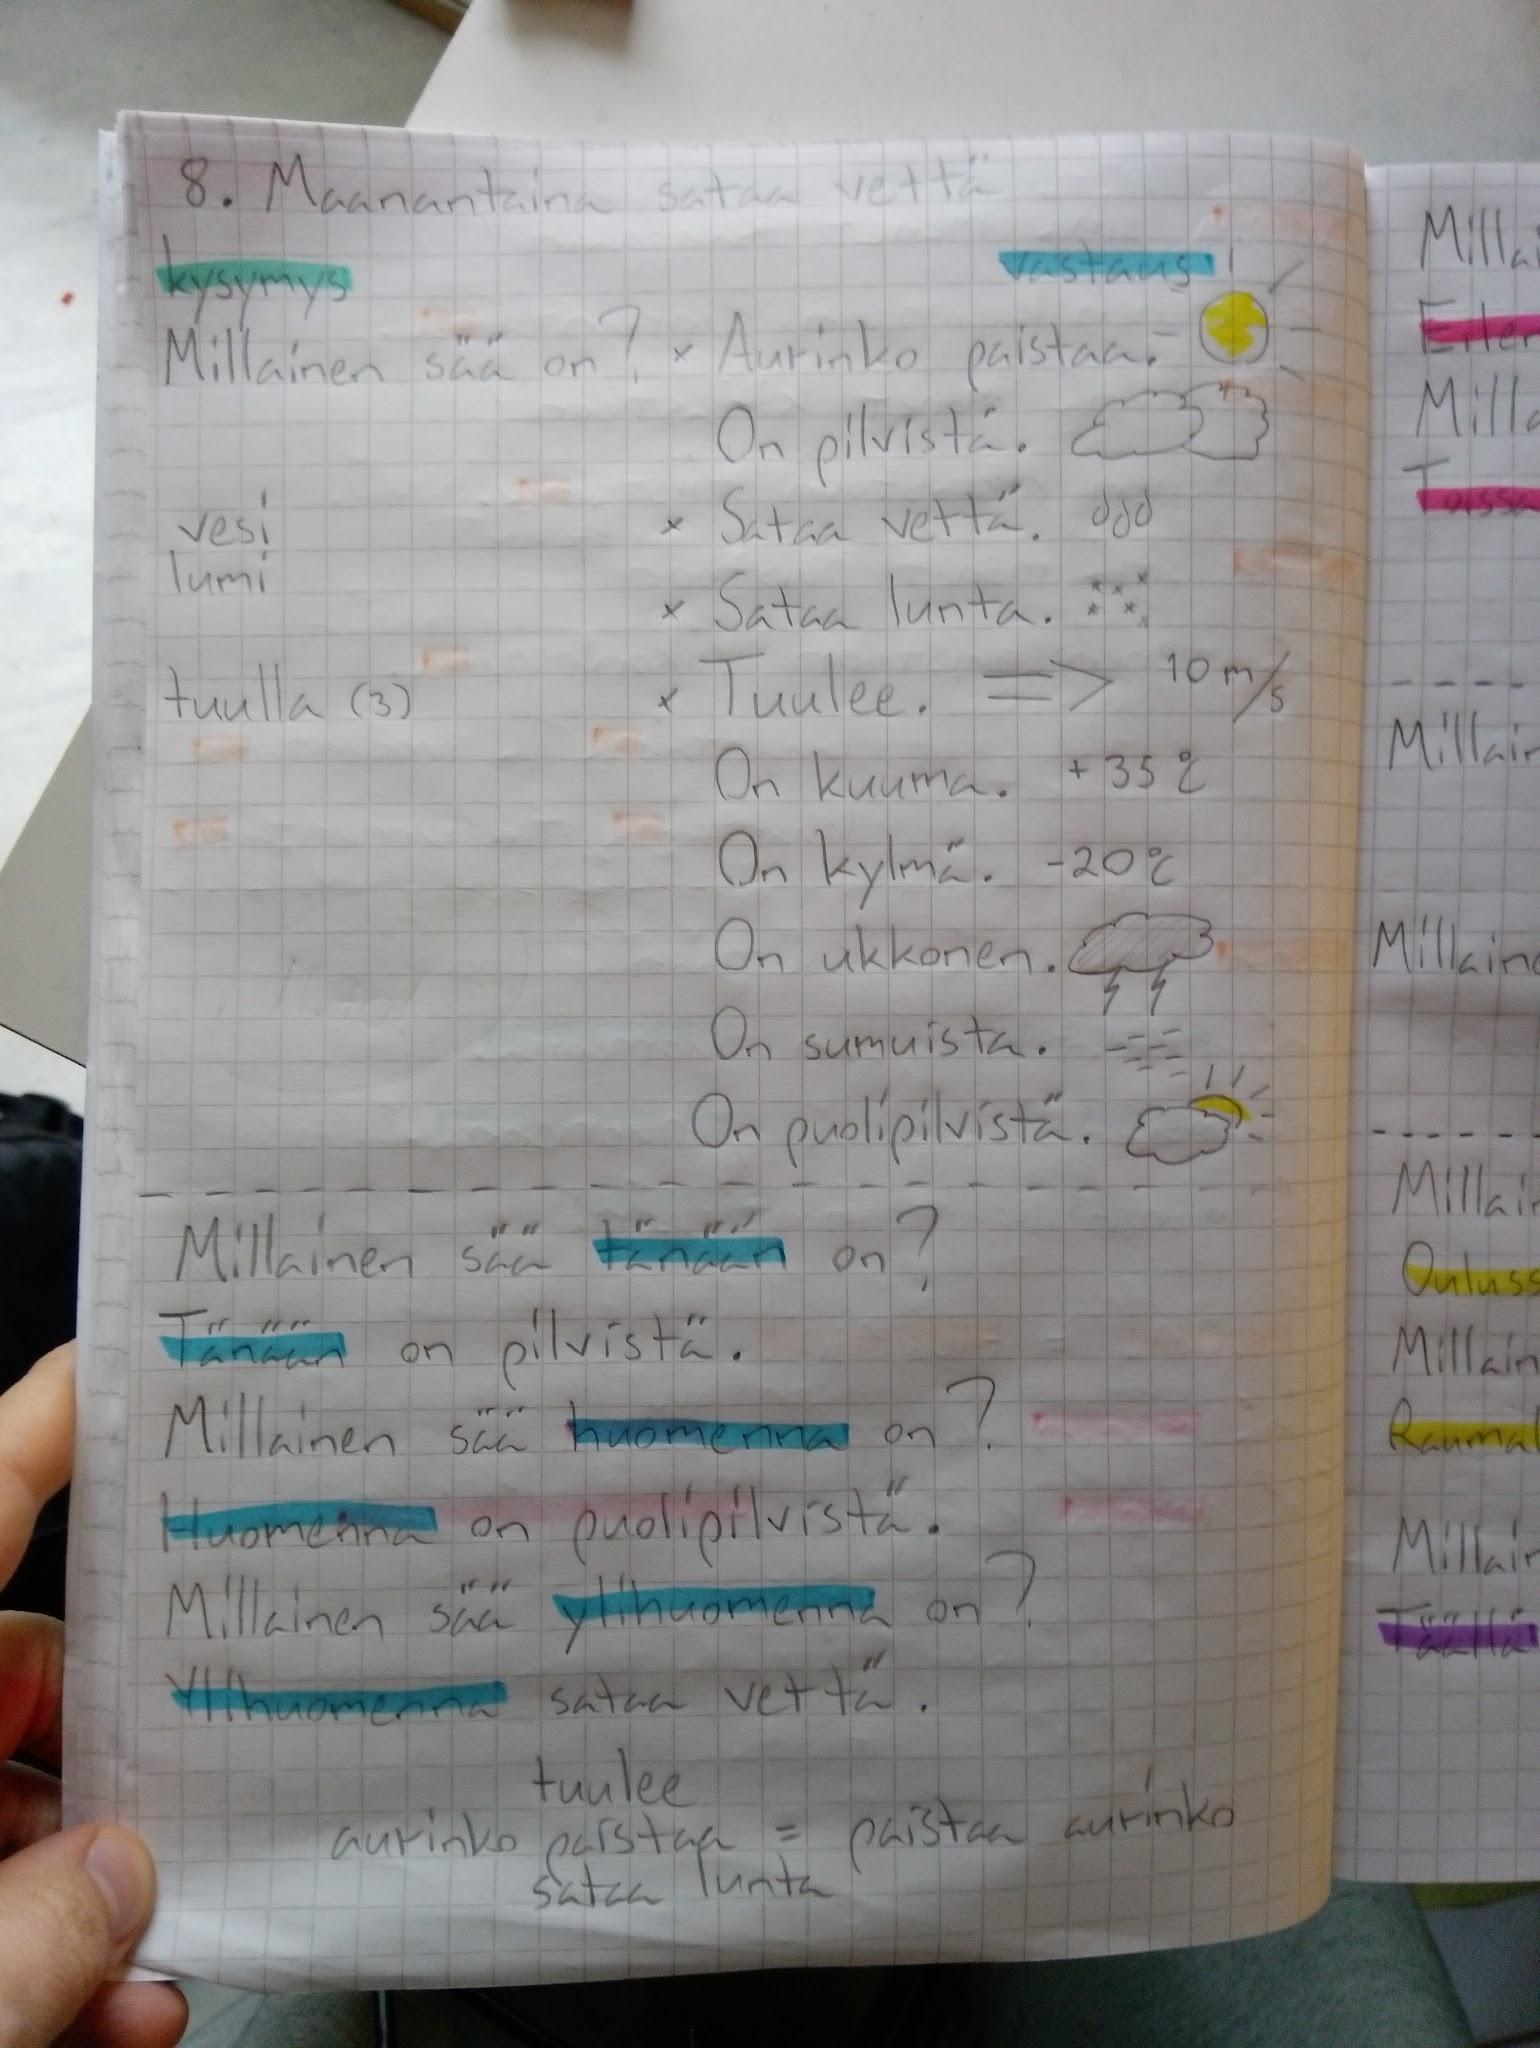 8. Maanantaina sataa vettä
kysymys vastaus
Millainen sää on? x Aurinko paistaa.
On pilvistä.
vesi x Sataa vettä.
lumi
x Sataa lunta.
tuulla (3) x Tuulee. => 10 m/s
On kuuma. +35 °C
On kylmä. -20 °C
On ukkonen.
On sumuista.
On puolipilvistä.
Millainen sää tänään on?
Tänään on pilvistä.
Millainen sää huomenna on?
Huomenna on puolipilvistä.
Millainen sää ylihuomenna on?
Ylihuomenna sataa vettä.
tuulee
aurinko paistaa = paistaa aurinko
sataa lunta
Millai
Eilen
Milla
Millair
Millaine
Millair
Ouluss
Millain
Raumal
Millair
Täällä